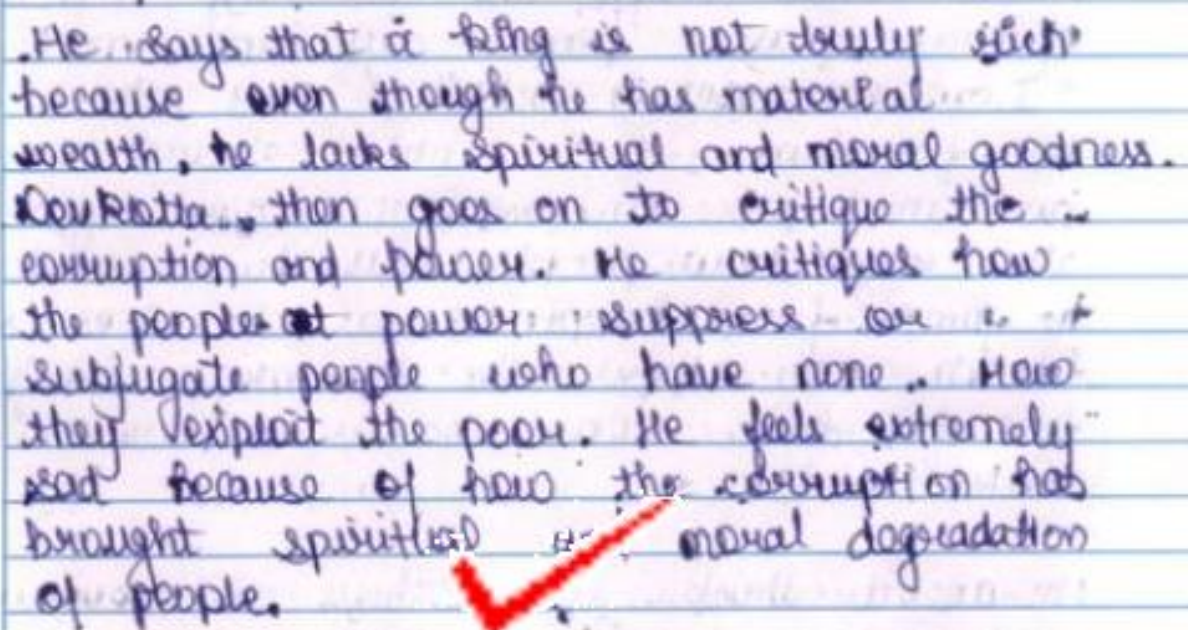 . He says that a king is not truly such
because even though he has material
wealth, he lacks spiritual and moral goodness.
Devkotta.. then goes on to critique the
corruption and power. He critiques how
the people at power suppress or
subjugate people who have none.. How
they exploit the poor. He feels extremely
sad because of how the corruption has
brought spiritual moral degradation
of people.